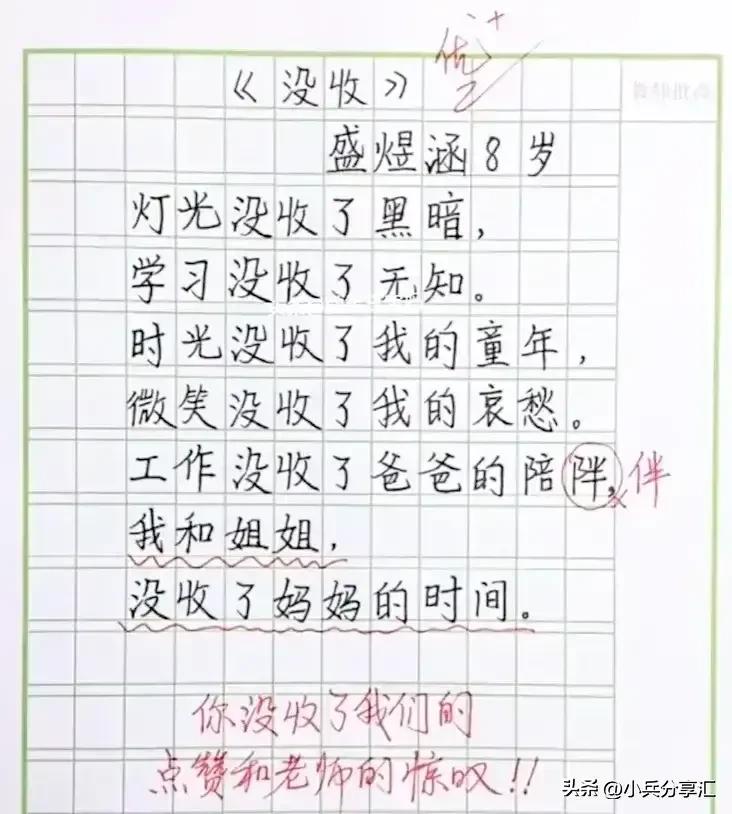 优+
《没收》
教师批改
盛煜涵8岁
灯光没收了黑暗，
学习没收了无知。
时光没收了我的童年，
微笑没收了我的哀愁。
工作没收了爸爸的陪阱，伴
我和姐姐，
没收了妈妈的时间。
你没收了我们的
点赞和老师的惊叹!!
头条 @小兵分享汇